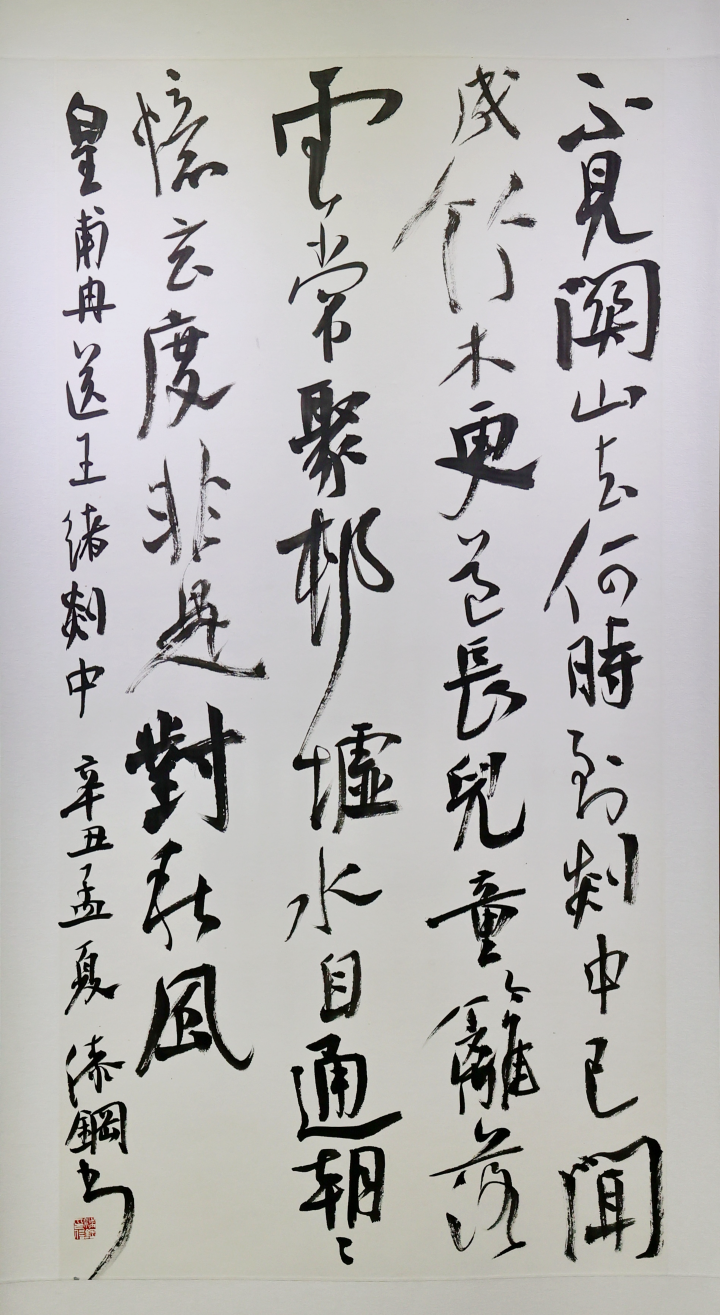 不見關山去何時到剡中已聞
成竹木更道長兒童籬落
雲常聚村墟水自通朝〻
憶玄度非是對春風
皇甫冉送王緒剡中 辛丑孟夏 鋼書